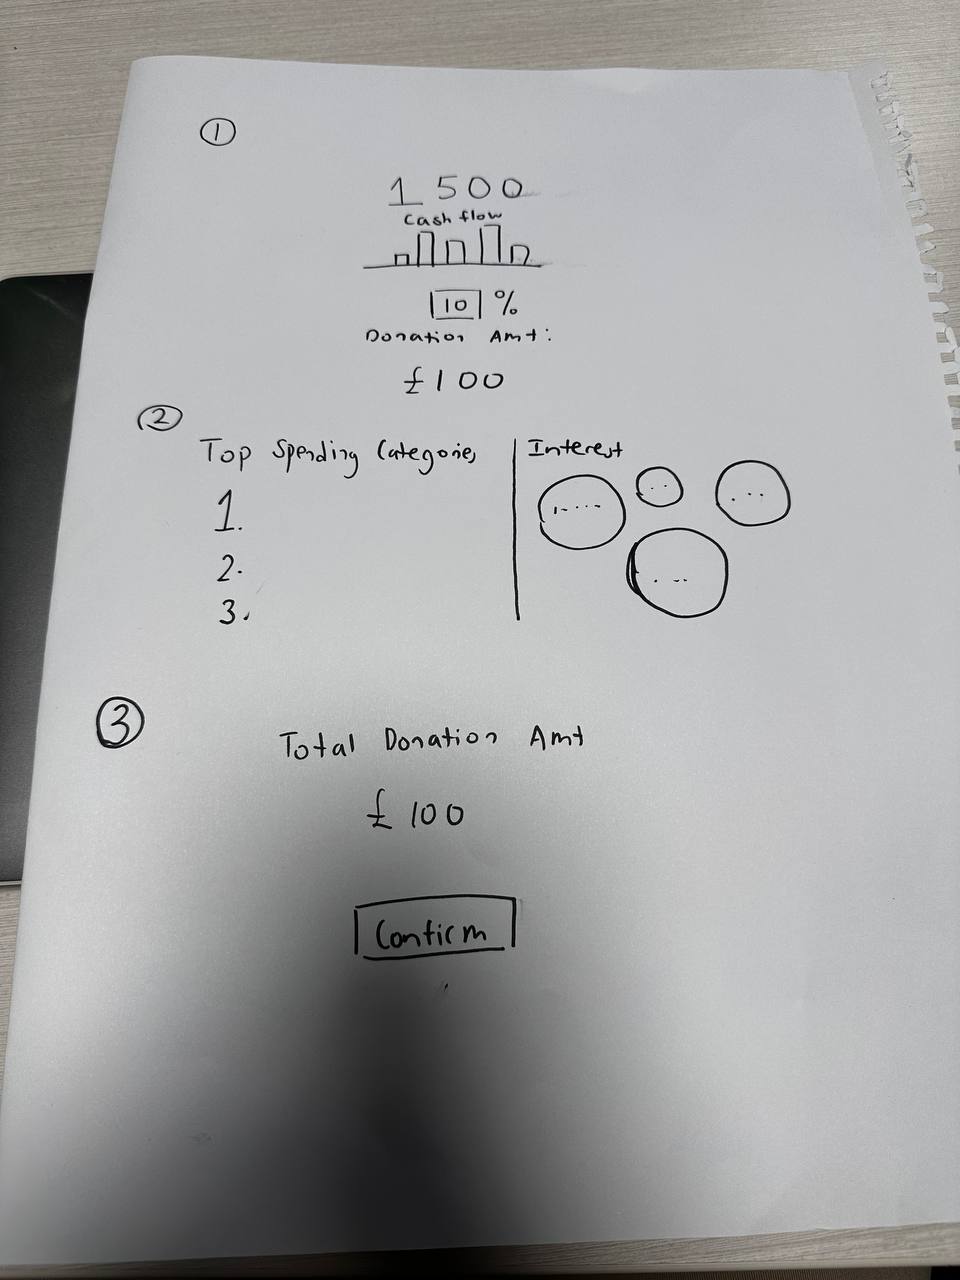 1
1 500
Cash flow
10 %
Donation Amt:
£100
2
Top Spending Categories
Interest
1.
2.
3.
3
Total Donation Amt
£ 100
Confirm